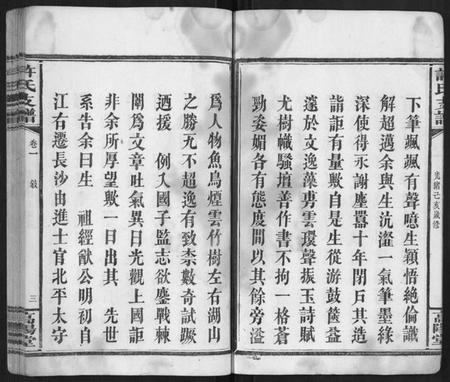 許氏支譜
光緒己亥歲修
高陽堂
下筆颯颯有聲噫生穎悟絕倫識
解超邁余與生沆瀣一氣筆墨緣
深使得示謝塵囂十年閉戶其造
詣詎有量歟自是生從游鼓篋益
邃於文逸藻雲環聲振玉詩賦
尤樹幟騷壇善作書不拘一格蒼
勁姿媚各有態度間以其餘旁溢
為人物魚鳥煙雲竹樹左右湖山
之勝无不超逸有致柰數奇試蹶
廼援 例入國子監志欲鏖戰棘
闈為文章吐氣異日光觀上國詎
非余所厚望歟一日出其 先世
系告余曰生 祖經猷公明初自
江右遷長沙由進士官北平太守
許氏支譜
卷一 敘
三
高陽堂